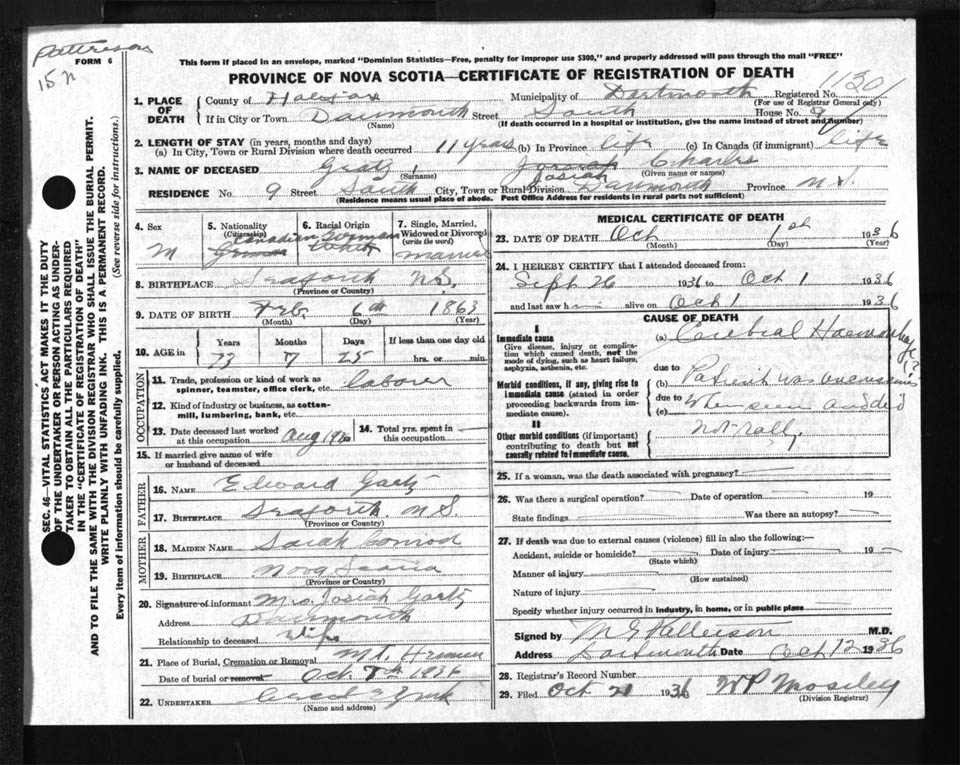 Patterson
15 N
FORM 6
This form if placed in an envelope, marked "Dominion Statistics—Free, penalty for improper use $300," and properly addressed will pass through the mail "FREE"
PROVINCE OF NOVA SCOTIA—CERTIFICATE OF REGISTRATION OF DEATH
SEC. 46—VITAL STATISTICS ACT MAKES IT THE DUTY
OF THE UNDERTAKER OR PERSON ACTING AS UNDER-
TAKER TO OBTAIN ALL THE PARTICULARS REQUIRED
IN THE "CERTIFICATE OF REGISTRATION OF DEATH"
AND TO FILE THE SAME WITH THE DIVISION REGISTRAR WHO SHALL ISSUE THE BURIAL PERMIT.
WRITE PLAINLY WITH UNFADING INK. THIS IS A PERMANENT RECORD.
Every item of information should be carefully supplied. (See reverse side for instructions.)
1. PLACE OF DEATH County of Halifax Municipality of Dartmouth Registered No. 1130
(For use of Registrar General only)
If in City or Town Dartmouth Street South House No. 9
(Name) (If death occurred in a hospital or institution, give the name instead of street and number)
2. LENGTH OF STAY (in years, months and days)
(a) In City, Town or Rural Division where death occurred 11 years (b) In Province life (c) In Canada (if immigrant) life
3. NAME OF DECEASED Josiah Charles
(Surname) (Given name or names)
RESIDENCE No. 9 Street South City, Town or Rural Division Dartmouth Province N.S.
(Residence means usual place of abode. Post Office Address for residents in rural parts not sufficient)
4. Sex M
5. Nationality (Citizenship) Canadian
6. Racial Origin German
7. Single, Married, Widowed or Divorced (write the word) married
8. BIRTHPLACE Seaforth N.S.
(Province or Country)
9. DATE OF BIRTH Feb. 6th 1863
(Month) (Day) (Year)
10. AGE in Years Months Days If less than one day old
73 7 25 hrs. or min.
OCCUPATION
11. Trade, profession or kind of work as spinner, teamster, office clerk, etc. laborer
12. Kind of industry or business, as cotton-mill, lumbering, bank, etc.
13. Date deceased last worked at this occupation Aug 19
14. Total yrs. spent in this occupation
15. If married give name of wife or husband of deceased
FATHER
16. NAME Edward Gaetz
17. BIRTHPLACE Seaforth N S
(Province or Country)
MOTHER
18. MAIDEN NAME Sarah Conrod
19. BIRTHPLACE Nova Scotia
(Province or Country)
20. Signature of informant Mrs Josiah Gaetz
Address Dartmouth
Relationship to deceased Wife
21. Place of Burial, Cremation or Removal Mt. Hermon
Date of burial or removal Oct. 7th 1936
22. UNDERTAKER
(Name and address)
MEDICAL CERTIFICATE OF DEATH
23. DATE OF DEATH Oct 1st 1936
(Month) (Day) (Year)
24. I HEREBY CERTIFY that I attended deceased from:
Sept 26 1936 to Oct 1 1936
and last saw h alive on Oct 1 1936
CAUSE OF DEATH
I
Immediate cause
Give disease, injury or complication which caused death, not the mode of dying, such as heart failure, asphyxia, asthenia, etc.
(a) Cerebral Haemorrhage (?)
due to
Morbid conditions, if any, giving rise to immediate cause (stated in order proceeding backwards from immediate cause).
(b) Patient was unconscious
due to
(c) when seen and did
not rally.
II
Other morbid conditions (if important) contributing to death but not causally related to immediate cause.
25. If a woman, was the death associated with pregnancy?
26. Was there a surgical operation? Date of operation 19
State findings Was there an autopsy?
27. If death was due to external causes (violence) fill in also the following:—
Accident, suicide or homicide? Date of injury 19
(State which)
Manner of injury
(How sustained)
Nature of injury
Specify whether injury occurred in industry, in home, or in public place
Signed by M G Patterson M.D.
Address Dartmouth Date Oct 12 1936
28. Registrar's Record Number
29. Filed Oct 21 1936 W P Moseley
(Division Registrar)